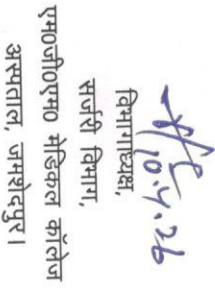 10.4.26
विभागाध्यक्ष,
सर्जरी विभाग,
एम०जी०एम० मेडिकल कॉलेज
अस्पताल, जमशेदपुर।